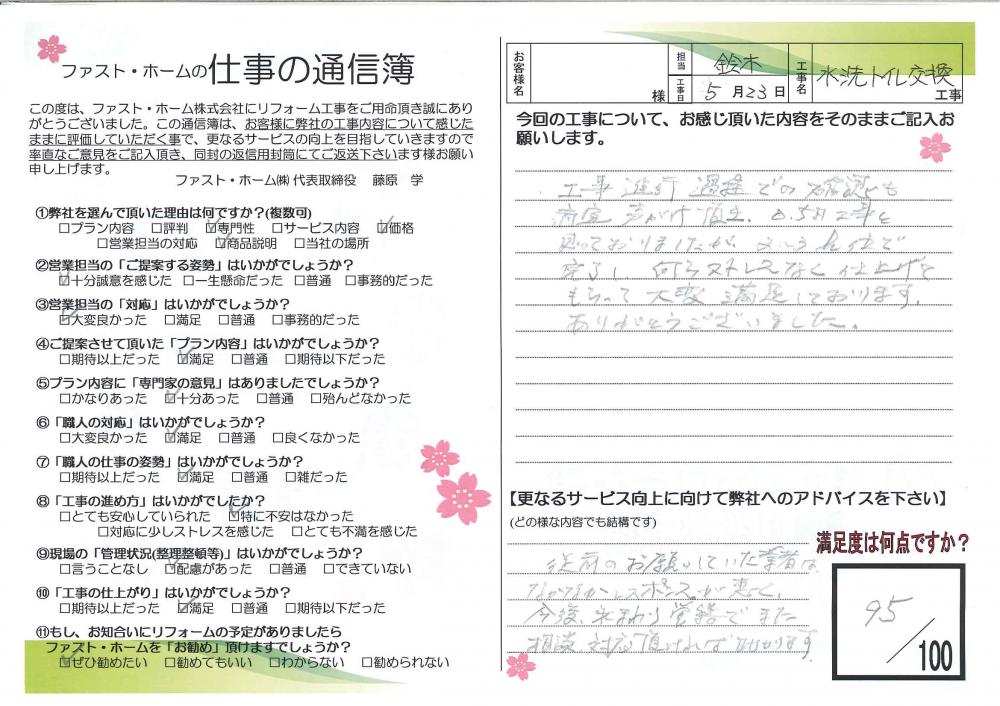 ファスト・ホームの仕事の通信簿
この度は、ファスト・ホーム株式会社にリフォーム工事をご用命頂き誠にあり
がとうございました。この通信簿は、お客様に弊社の工事内容について感じた
ままに評価していただく事で、更なるサービスの向上を目指していきますので
率直なご意見をご記入頂き、同封の返信用封筒にてご返送下さいます様お願い
申し上げます。
ファスト・ホーム㈱ 代表取締役 藤原 学
①弊社を選んで頂いた理由は何ですか？(複数可)
□プラン内容 □評判 ☑専門性 □サービス内容 ☑価格
□営業担当の対応 ☑商品説明 □当社の場所
②営業担当の「ご提案する姿勢」はいかがでしょうか？
☑十分誠意を感じた □一生懸命だった □普通 □事務的だった
③営業担当の「対応」はいかがでしょうか？
☑大変良かった □満足 □普通 □事務的だった
④ご提案させて頂いた「プラン内容」はいかがでしょうか？
□期待以上だった ☑満足 □普通 □期待以下だった
⑤プラン内容に「専門家の意見」はありましたでしょうか？
□かなりあった ☑十分あった □普通 □殆んどなかった
⑥「職人の対応」はいかがでしょうか？
□大変良かった ☑満足 □普通 □良くなかった
⑦「職人の仕事の姿勢」はいかがでしょうか？
□期待以上だった ☑満足 □普通 □雑だった
⑧「工事の進め方」はいかがでしたか？
□とても安心していられた ☑特に不安はなかった
□対応に少しストレスを感じた □とても不満を感じた
⑨現場の「管理状況(整理整頓等)」はいかがでしょうか？
□言うことなし ☑配慮があった □普通 □できていない
⑩「工事の仕上がり」はいかがでしょうか？
□期待以上だった ☑満足 □普通 □期待以下だった
⑪もし、お知合いにリフォームの予定がありましたら
ファスト・ホームを「お勧め」頂けますでしょうか？
☑ぜひ勧めたい □勧めてもいい □わからない □勧められない
お客様名 様 担当 鈴木 工事日 5月23日 工事名 水洗トイレ交換 工事
今回の工事について、お感じ頂いた内容をそのままご記入お
願いします。
工事進行過程での確認も
声がけ頂き、 工事と
思っておりましたが、 で
完了し、何らストレスなく仕上げて
もらって大変満足しております。
ありがとうございました。
【更なるサービス向上に向けて弊社へのアドバイスを下さい】
(どの様な内容でも結構です)
従前のお願いしていた業者は
なかなかレスポンスが悪く、
今後、水まわり でまた
相談、対応頂ければ助かります
満足度は何点ですか？
95/100